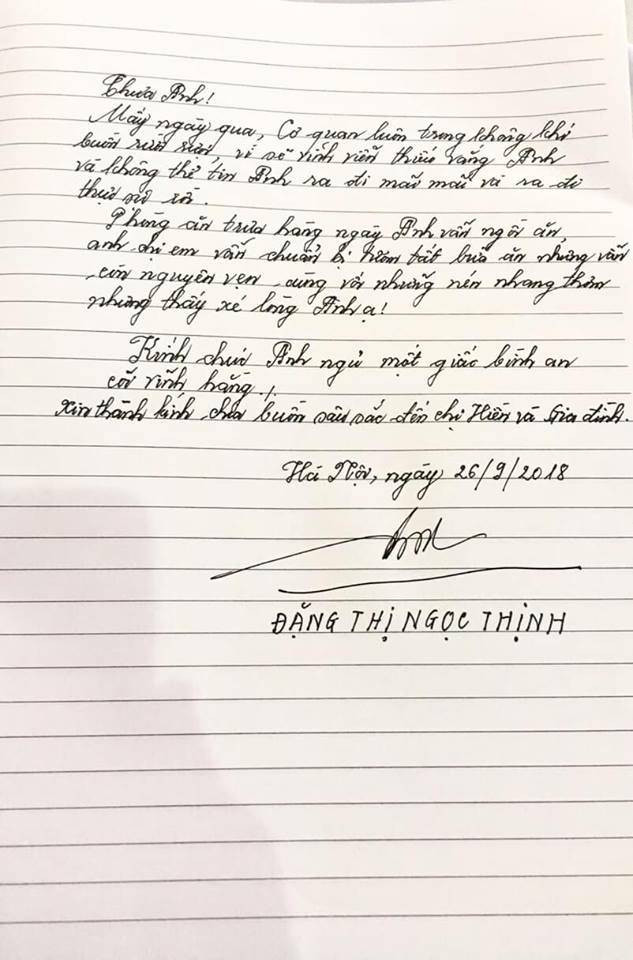 Thưa Anh!
Mấy ngày qua, Cơ quan luôn trong không khí
buồn rười rượi, vì sẽ vĩnh viễn thiếu vắng Anh
và không thể tin Anh ra đi mãi mãi và ra đi
thực sự rồi.
Phòng ăn trưa hàng ngày Anh vẫn ngồi ăn,
anh chị em vẫn chuẩn bị tươm tất bữa ăn nhưng vẫn
còn nguyên vẹn, cùng với những nén nhang thơm
nhưng thấy xé lòng Anh ạ!
Kính chúc Anh ngủ một giấc bình an
cõi vĩnh hằng!
Xin thành kính chia buồn sâu sắc đến chị Hiền và Gia đình.
Hà Nội, ngày 26/9/2018
ĐẶNG THỊ NGỌC THỊNH